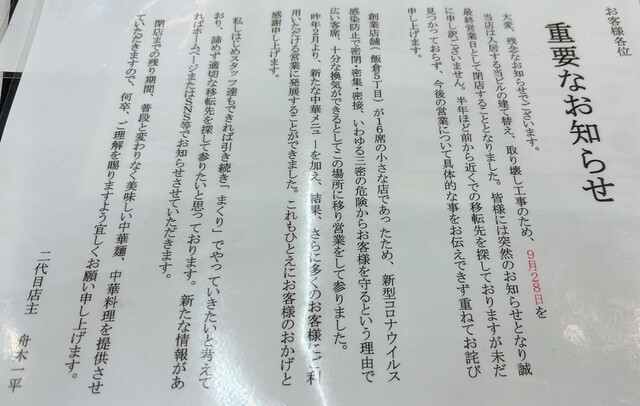 お客様各位
重要なお知らせ
大変、残念なお知らせでございます。
当店は入居する当ビルの建て替え、取り壊し工事のため、9月28日を
最終営業日として閉店することとなりました。皆様には突然のお知らせとなり誠
に申し訳ございません。半年ほど前から近くでの移転先を探しておりますが未だ
見つかっておらず、今後の営業について具体的な事をお伝えできず重ねてお詫び
申し上げます。
創業店舗（飯倉5丁目）が16席の小さな店であったため、新型コロナウイルス
感染防止で密閉・密集・密接、いわゆる三密の危険からお客様を守るという理由で
広い客席、十分な換気ができるとしてこの場所に移り営業をして参りました。
昨年2月より、新たな中華メニューを加え、結果、さらに多くのお客様にご利
用いただける営業に発展することができました。これもひとえにお客様のおかげと
感謝申し上げます。
私はじめスタッフ達もできれば引き続き「まくり」でやっていきたいと考えて
おり、諦めず適切な移転先を探して参りたいと思っております。新たな情報があ
ればホームページまたはSNS等でお知らせさせていただきます。
閉店までの残り期間、普段と変わりなく美味しい中華麺、中華料理を提供させ
ていただきますので、何卒、ご理解を賜りますよう宜しくお願い申し上げます。
二代目店主 舟木一平